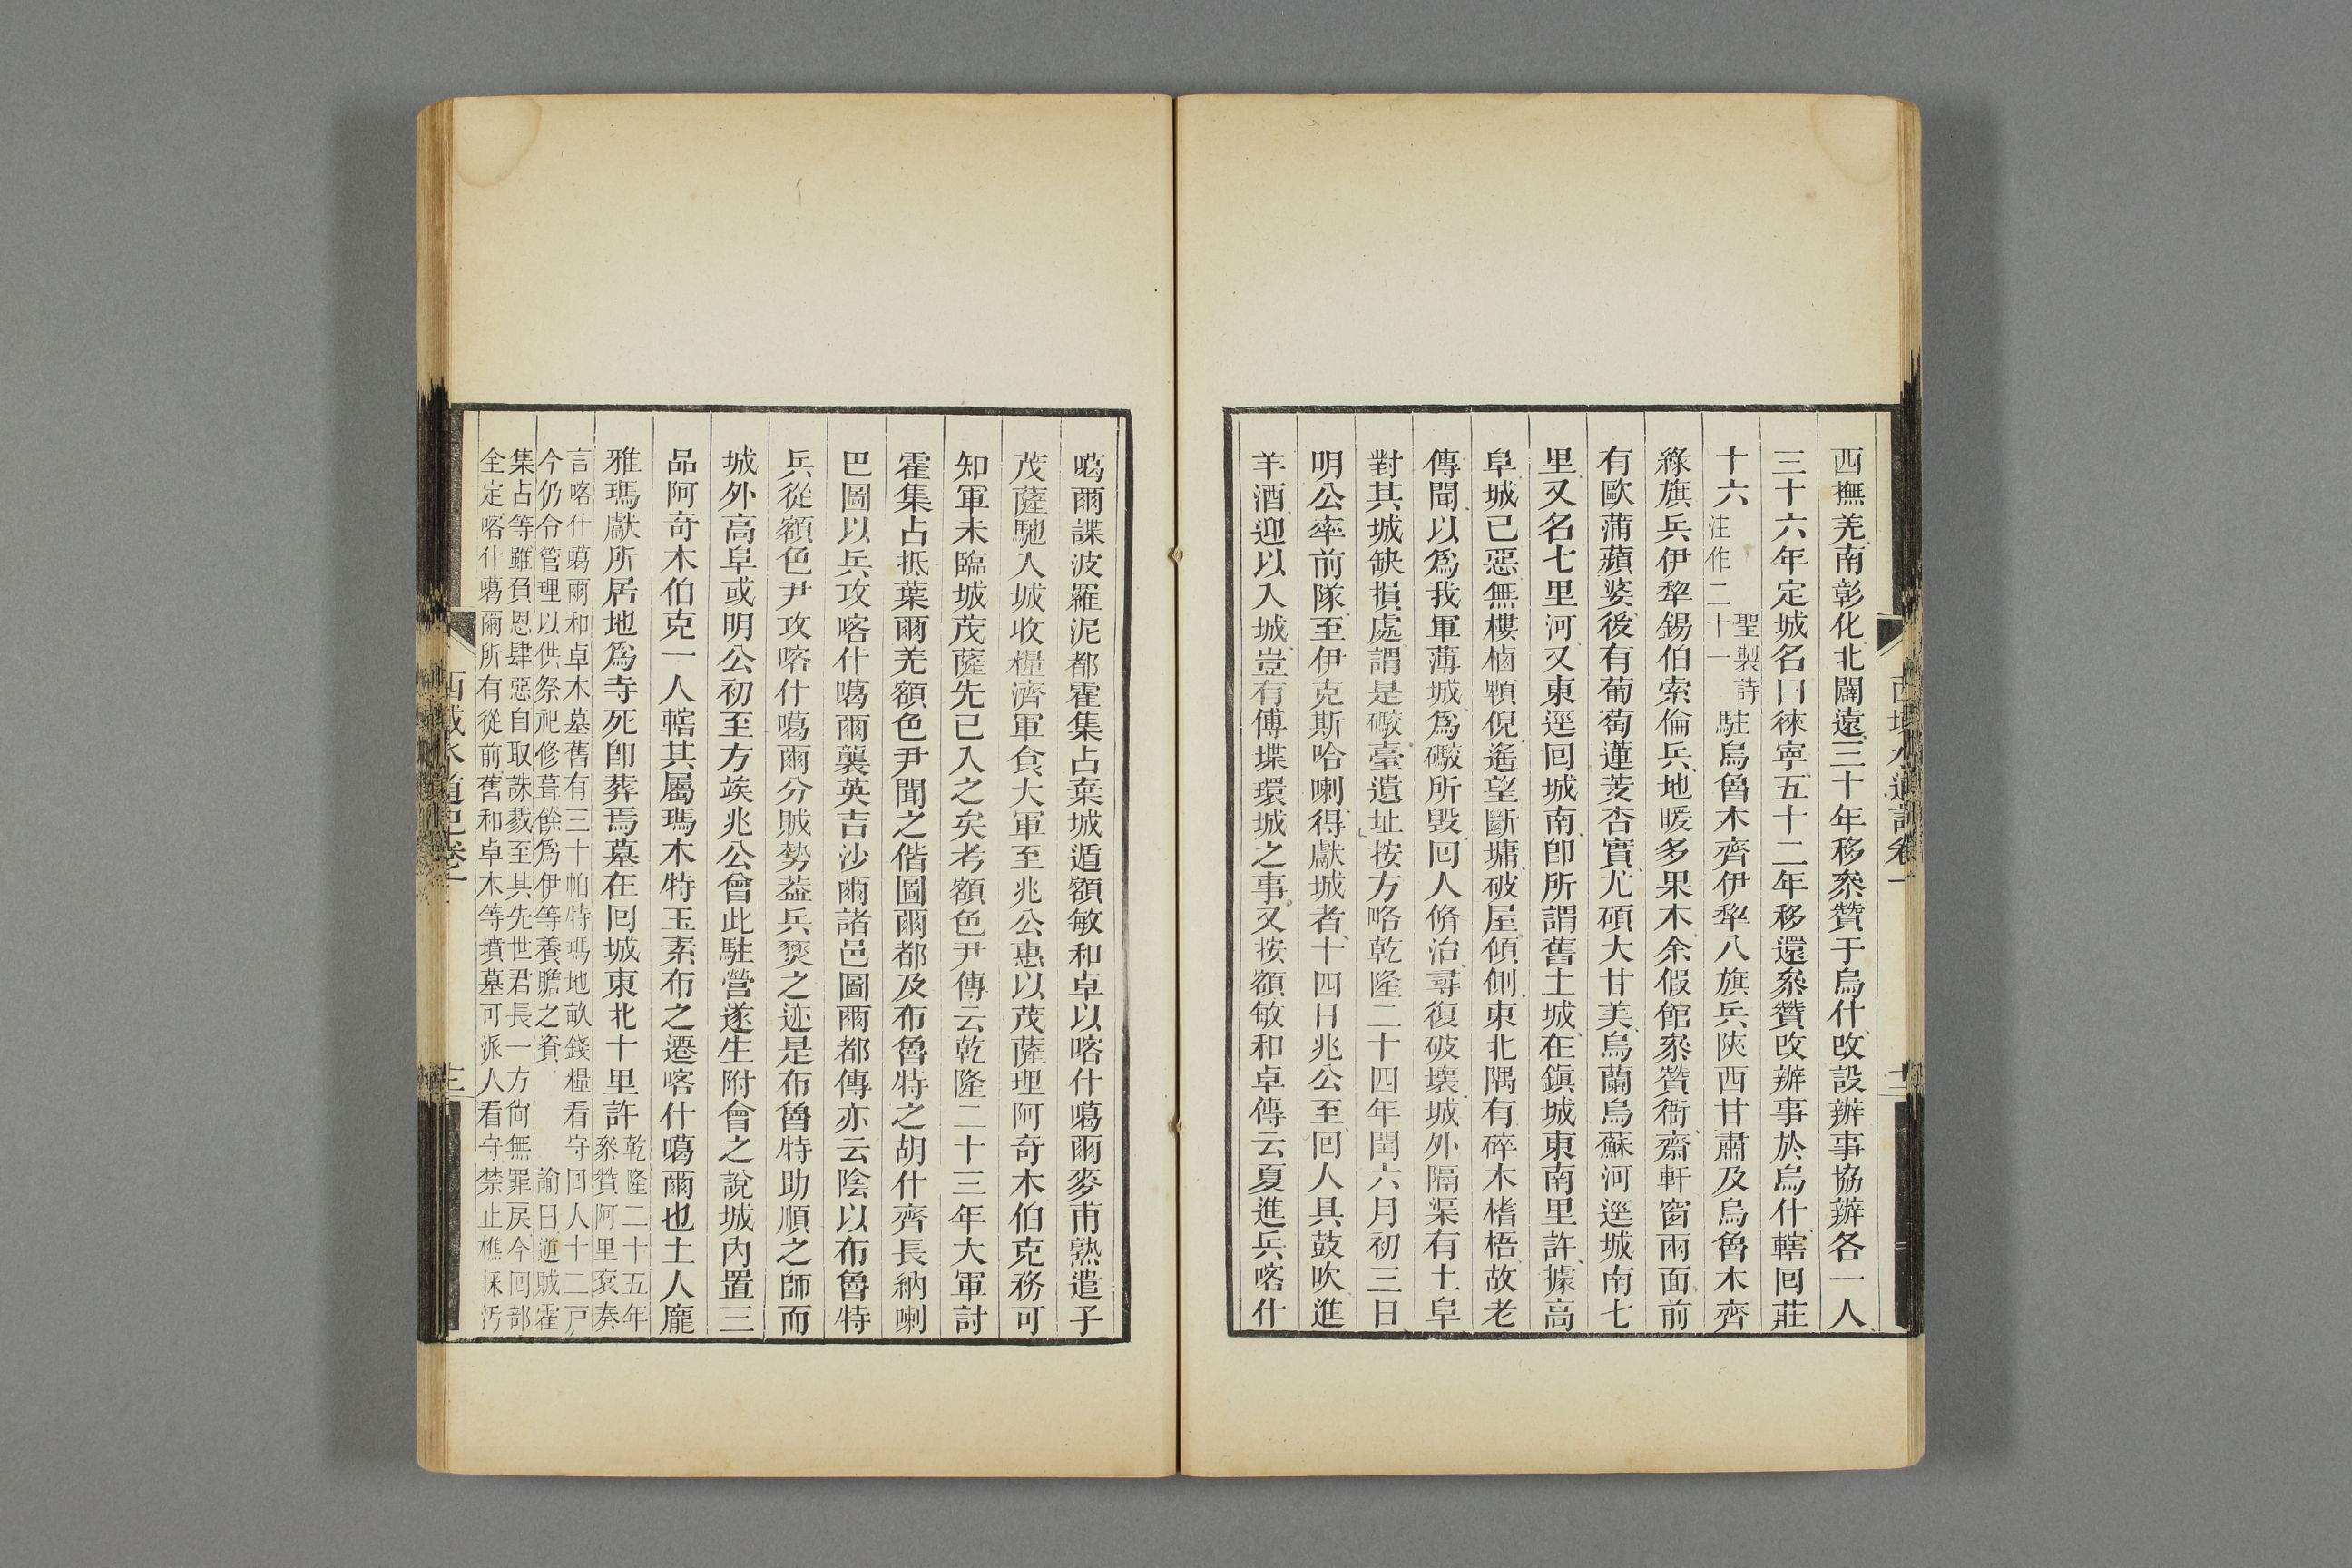 西域水道記卷一
西撫羌南彰化北闢遠三十年移叅贊于烏什改設辦事協辦各一人
三十六年定城名曰徠寧五十二年移還叅贊改辦事於烏什轄回莊
十六
聖製詩
注作二十一
駐烏魯木齊伊犂八旗兵陜西甘肅及烏魯木齊
綠旗兵伊犂錫伯索倫兵地暖多果木余假館叅贊衙齋軒窗兩面前
有歐蒲蘋婆後有葡萄蓮菱杏實尤碩大甘美烏蘭烏蘇河逕城南七
里又名七里河又東逕回城南卽所謂舊土城在鎭城東南里許據高
阜城已惡無樓樐顊倪遙望斷墉破屋傾側東北隅有碎木楮梧故老
傳聞以爲我軍薄城爲礮所毀回人脩治尋復破壞城外隔渠有土阜
對其城缺損處謂是礮臺遺址按方略乾隆二十四年閏六月初三日
明公率前隊至伊克斯哈喇得獻城者十四日兆公至回人具鼓吹進
羊酒迎以入城豈有傅堞環城之事又按額敏和卓傳云夏進兵喀什
噶爾諜波羅泥都霍集占棄城遁額敏和卓以喀什噶爾麥甫熟遣子
茂薩馳入城收糧濟軍食大軍至兆公惠以茂薩理阿奇木伯克務可
知軍未臨城茂薩先已入之矣考額色尹傳云乾隆二十三年大軍討
霍集占抵葉爾羌額色尹聞之偕圖爾都及布魯特之胡什齊長納喇
巴圖以兵攻喀什噶爾襲英吉沙爾諸邑圖爾都傳亦云陰以布魯特
兵從額色尹攻喀什噶爾分賊勢葢兵燹之迹是布魯特助順之師而
城外高阜或明公初至方竢兆公曾此駐營遂生附會之說城內置三
品阿奇木伯克一人轄其屬瑪木特玉素布之遷喀什噶爾也土人龐
雅瑪獻所居地爲寺死卽葬焉墓在回城東北十里許
乾隆二十五年
叅贊阿里衮奏
言喀什噶爾和卓木墓舊有三十帕特瑪地畝錢糧看守回人十二戶
今仍令管理以供祭祀修葺餘爲伊等養贍之資 諭曰逆賊霍
集占等雖負恩肆惡自取誅戮至其先世君長一方尙無罪戾今回部
全定喀什噶爾所有從前舊和卓木等墳墓可派人看守禁止樵採污
西域水道記卷一